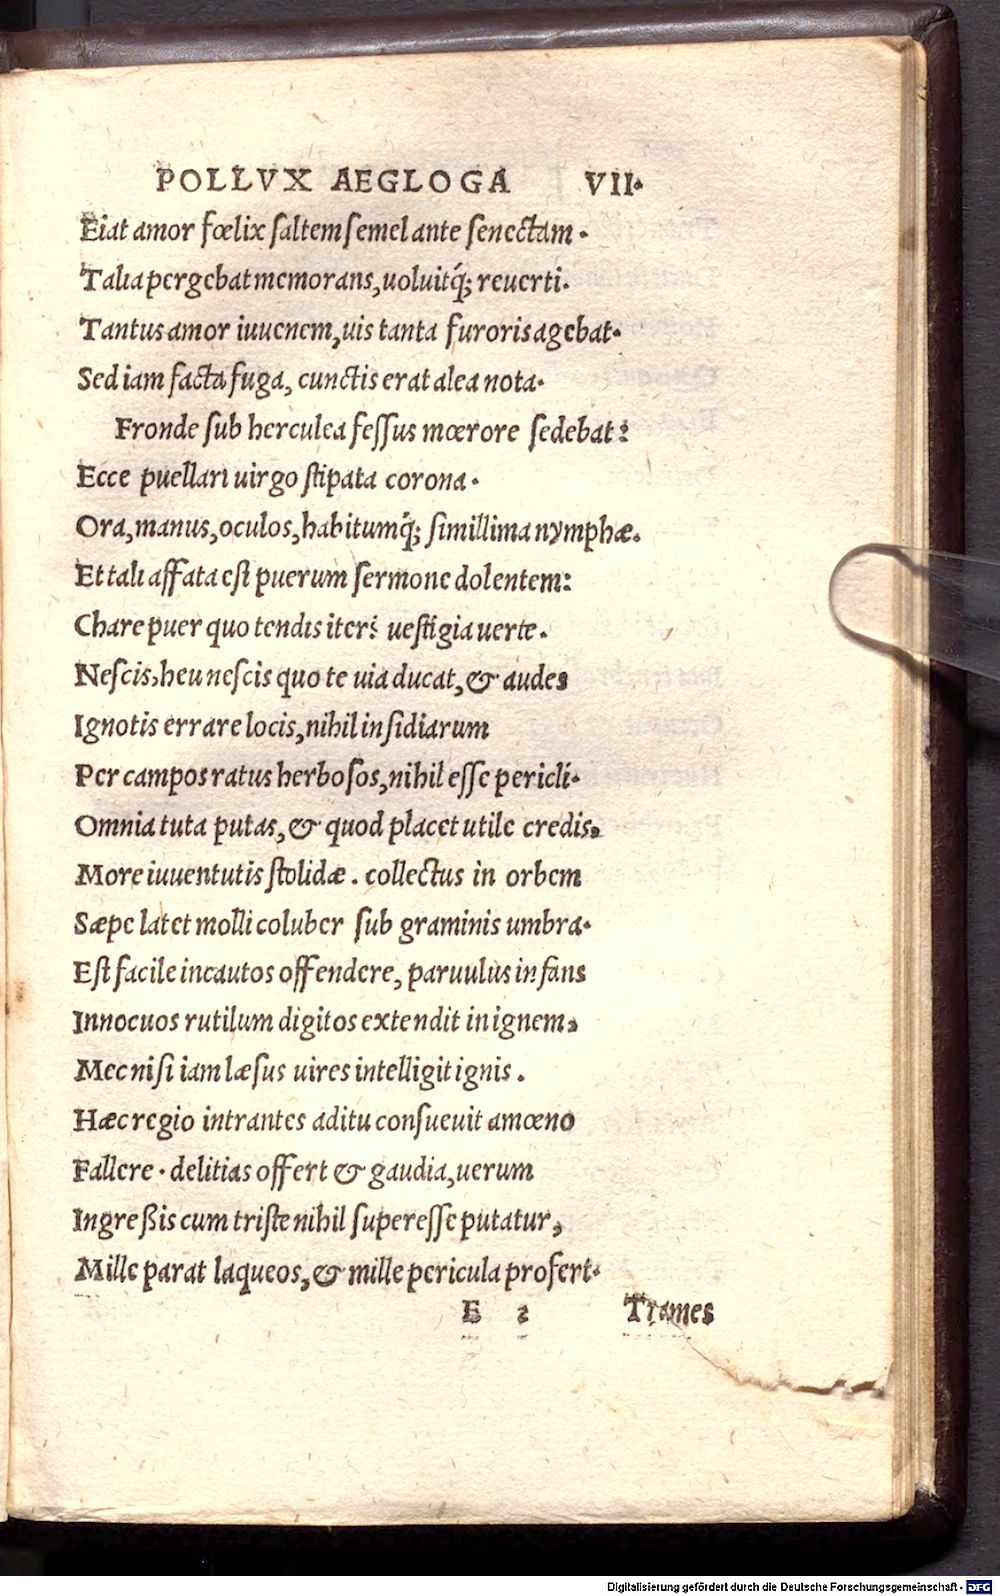 POLLVX AEGLOGA VII.
Eiat amor fœlix ſaltem ſemel ante ſenectam.
Talia pergebat memorans, uoluitq́; reuerti.
Tantus amor iuuenem, uis tanta furoris agebat.
Sed iam facta fuga, cunctis erat alea nota.
Fronde ſub herculea feſſus mœrore ſedebat:
Ecce puellari uirgo ſtipata corona.
Ora, manus, oculos, habitumq́; ſimillima nymphæ.
Et tali affata eſt puerum ſermone dolentem:
Chare puer quo tendis iter? ueſtigia uerte.
Neſcis, heu neſcis quo te uia ducat, & audes
Ignotis errare locis, nihil inſidiarum
Per campos ratus herboſos, nihil eſſe pericli.
Omnia tuta putas, & quod placet utile credis,
More iuuentutis ſtolidæ. collectus in orbem
Sæpe latet molli coluber ſub graminis umbra.
Eſt facile incautos offendere, paruulus infans
Innocuos rutilum digitos extendit in ignem,
Mec niſi iam læſus uires intelligit ignis.
Hæc regio intrantes aditu conſueuit amœno
Fallere. delitias offert & gaudia, uerum
Ingreßis cum triſte nihil ſupereſſe putatur,
Mille parat laqueos, & mille pericula profert.
E 2 Trames
Digitalisierung gefördert durch die Deutsche Forschungsgemeinschaft - DFG